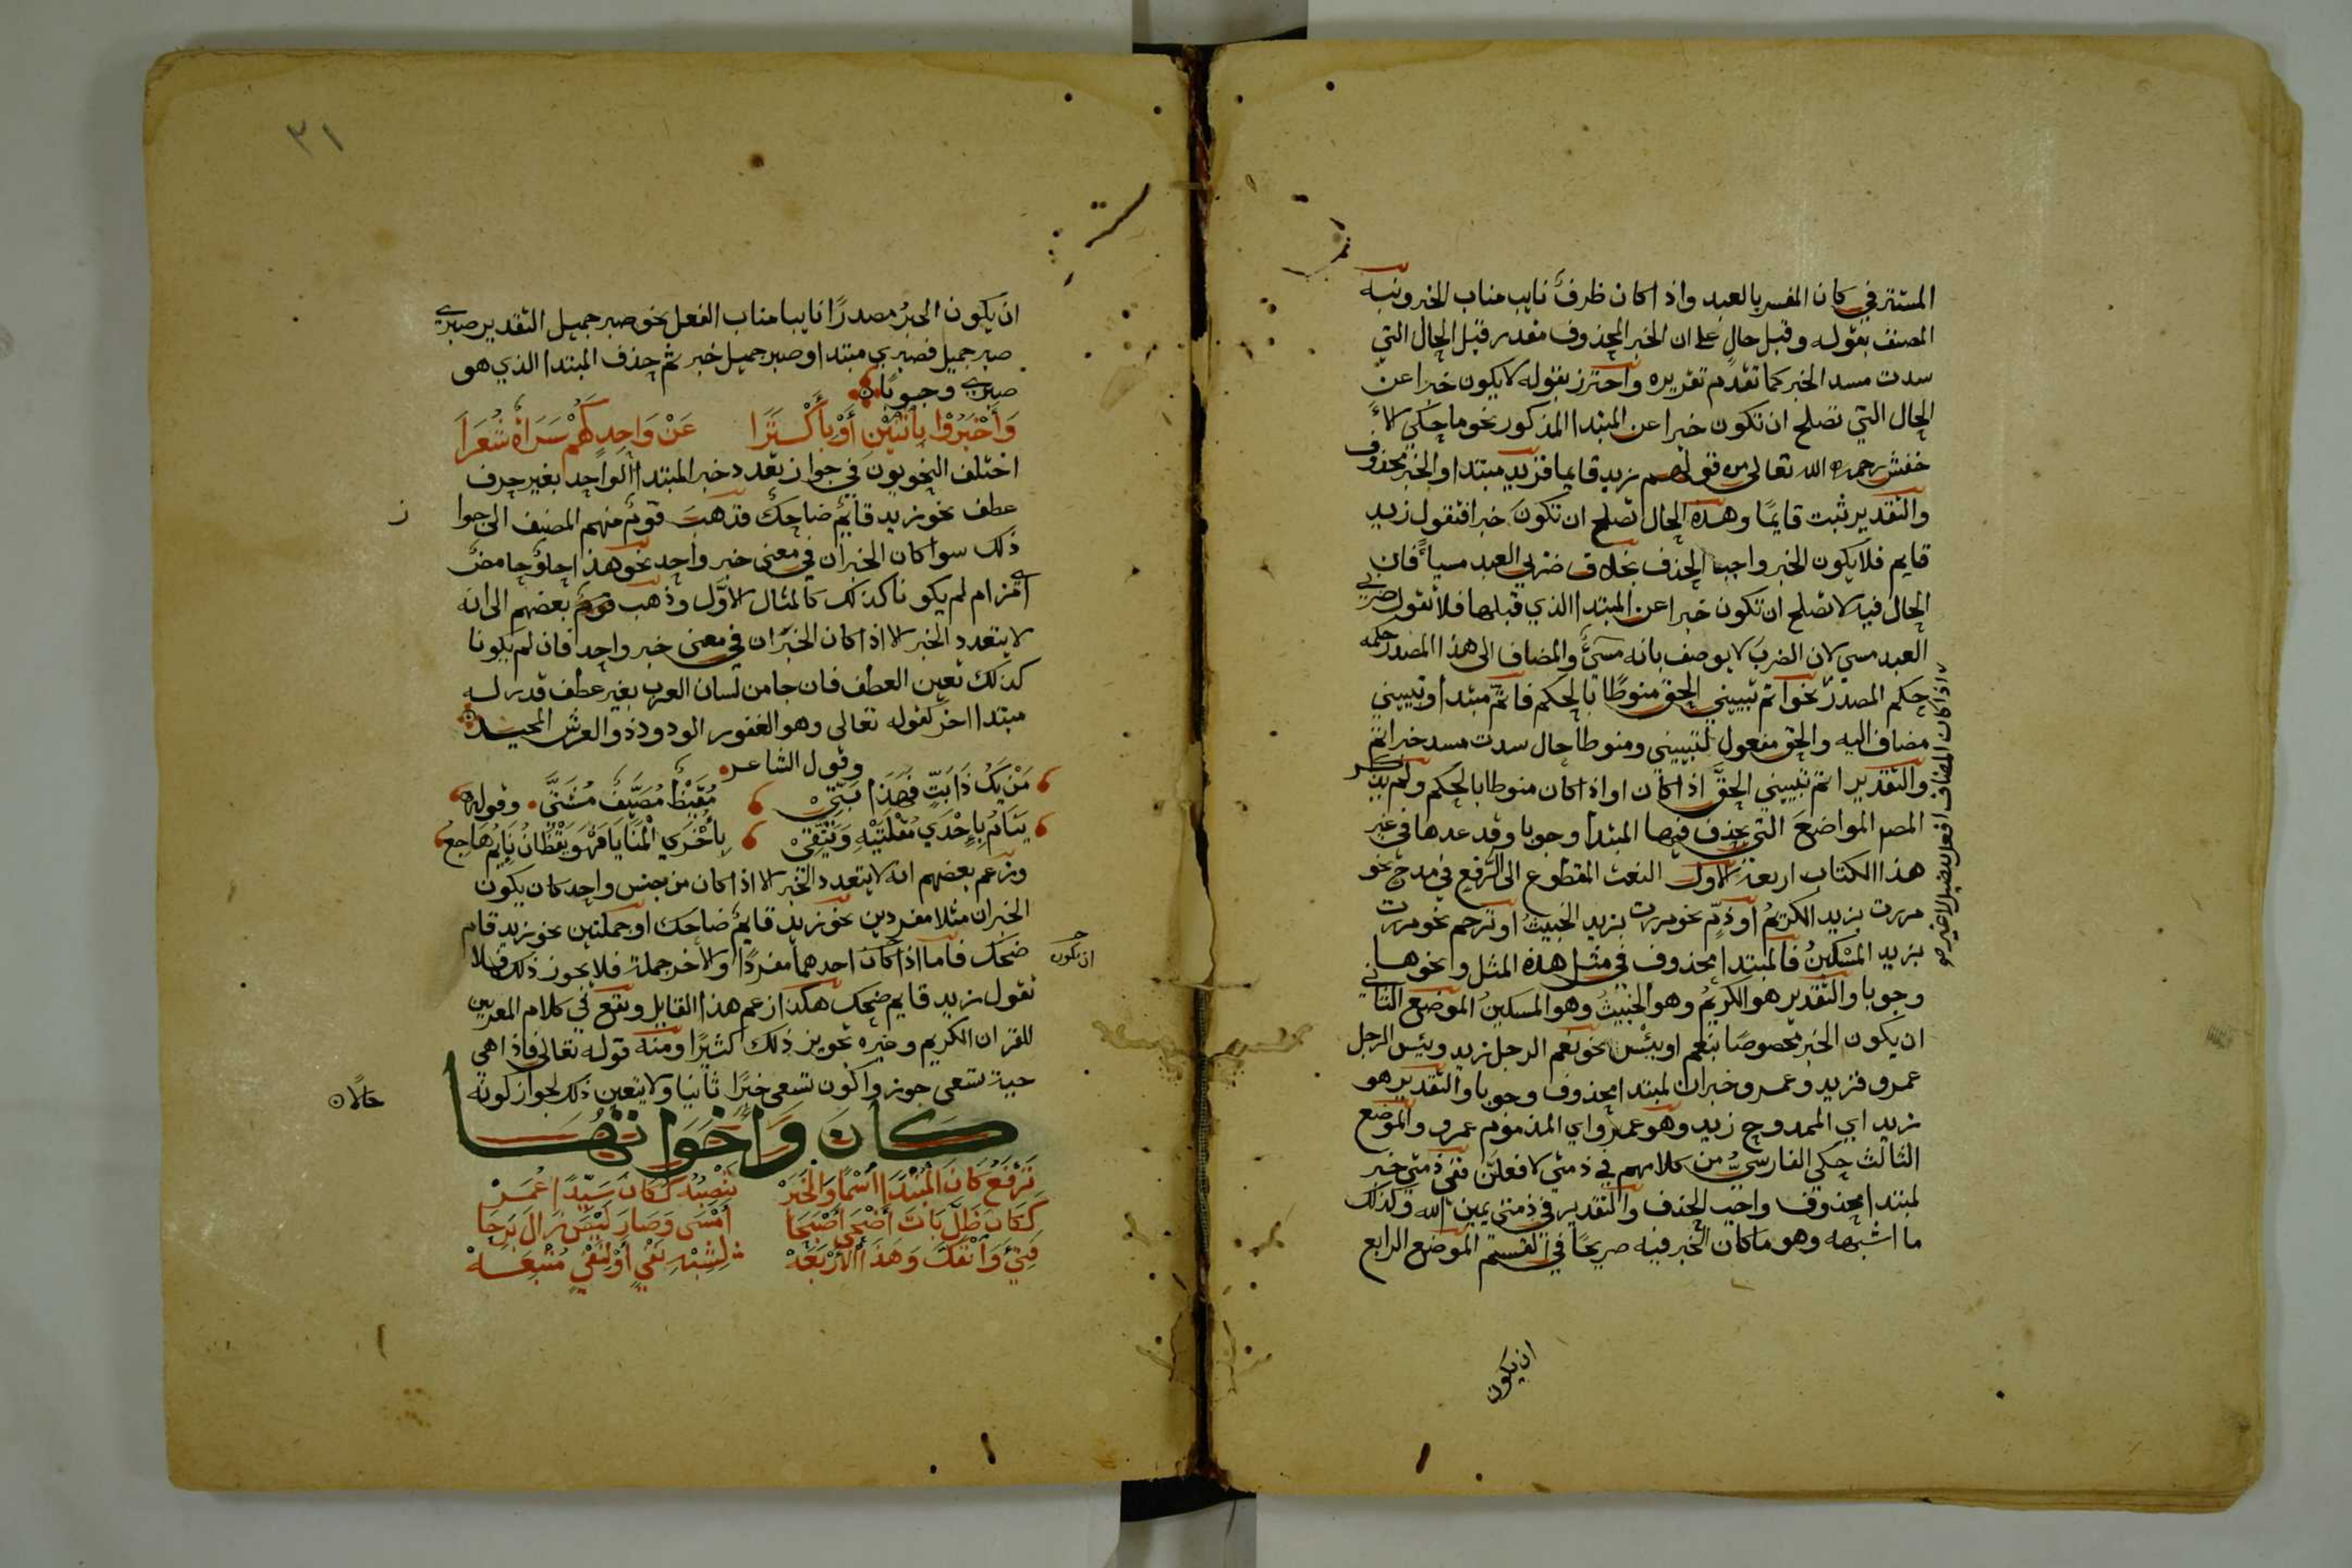 المستتر في كان المفسر بالعبد واذا كان ظرف نايب مناب الخبر ونبه
المصنف بقوله وقبل حال على ان الخبر المحذوف مقدر قبل الحال التي
سدت مسد الخبر كما تقدم تقريره واحترز بقوله لا يكون خبرا عن
الحال التي تصلح ان تكون خبرا عن المبتدا المذكور نحو ما حكي الا
خفش رحمه الله تعالى من قولهم زيد قايما فزيد مبتدا والخبر محذوف
والتقدير ثبت قايمًا وهذه الحال تصلح ان تكون خبرا فتقول زيد
قايم فلا يكون الخبر واجب الحذف بخلاف ضربي العبد مسيأ فان
الحال فيه لا تصلح ان تكون خبرا عن المبتدا الذي قبلها فلا تقول ضربي
العبد مسي لان الضرب لا يوصف بانه مسيء والمضاف الى هذا المصدر حكمه
حكم المصدر نحو اتم تبييني الحق منوطا بالحكم فاتم مبتدا وتبييني
مضاف اليه والحق مفعول لتبييني ومنوطا حال سدت مسد خبر اتم
والتقدير اتم تبييني الحق اذا كان او اذ كان منوطا بالحكم ولم يذكر
المص المواضع التي يحذف فيها المبتدا وجوبا وقد عدها في غير
هذا الكتاب اربعة الاول النعت المقطوع الى الرفع في مدح نحو
مررت بزيد الكريمُ او ذمٍّ نحو مررت بزيد الخبيثُ او ترحم نحو مررت
بزيد المسكينُ فالمبتدا محذوف في مثل هذه المثل ونحوها
وجوبا والتقدير هو الكريمُ وهو الخبيثُ وهو المسكينُ الموضع الثاني
ان يكون الخبر مخصوصًا بنعم او بئس نحو نعم الرجل زيد وبئس الرجل
عمرو فزيد وعمرو خبران لمبتدا محذوف وجوبا والتقدير هو
زيد اي الممدوح زيد وهو عمرو اي المذموم عمرو والموضع
الثالث حكي الفارسيُّ من كلامهم في ذمتي لافعلن ففي ذمتي خبر
لمبتدا محذوف واجب الحذف والتقدير في ذمتي يمين الله وكذلك
ما اشبهه وهو ما كان الخبر فيه صريحًا في القسم الموضع الرابع
ان يكون
اذا كان المضاف افعل تفضيل لا غير صح
٣١
ان يكون الخبرُ مصدرًا نايبا مناب الفعل نحو صبر جميل التقدير صبري
صبر جميل فصبري مبتدا وصبر جميل خبر ثم حذف المبتدا الذي هو
صبري وجوبًا
وَأَخْبَرُوا بِاثْنَيْنِ أَوْ بِأَكْثَرَا عَنْ وَاحِدٍ كَهُمْ سَرَاةٌ شُعَرَا
اختلف النحويون في جواز تعدد خبر المبتدا الواحد بغير حرف
عطف نحو زيد قايمٌ ضاحكٌ فذهب قومٌ منهم المصنف الى جوا
ز
ذلك سوا كان الخبران في معنى خبر واحد نحو هذا حلوٌ حامضٌ
اي مز ام لم يكونا كذلك كالمثال الاوَّل وذهب بعضهم الى انه
لا يتعدد الخبر الا اذا كان الخبران في معنى خبر واحد فان لم يكونا
كذلك تعين العطف فان جا من لسان العرب بغير عطف قدر له
مبتدا اخر كقوله تعالى وهو الغفور الودود ذو العرش المجيد
وقول الشاعر
مَنْ يَكُ ذَا بَتٍّ فَهَذَا بَتِّيْ مُقَيِّظٌ مُصَيِّفٌ مُشَتِّيْ وقوله
يَنَامُ بِإِحْدَي مُقْلَتَيْهِ وَيَتَّقِيْ بِأُخْرَي الْمَنَايَا فَهْوَ يَقْظَانُ نَايِمُ هَاجِعُ
وزعم بعضهم انه لا يتعدد الخبر الا اذا كان من جنس واحد كان يكون
الخبران مثلا مفردين نحو زيد قايمٌ ضاحك او جملتين نحو زيد قام
ضحك فاما اذا كان احدهما مفردًا والاخر جملة فلا يجوز ذلك فلا
ان يكون
تقول زيد قايم ضحك هكذا زعم هذا القايل ويقع في كلام المعربين
للقران الكريم وغيره تجويز ذلك كثيرًا ومنه قوله تعالى فاذا هي
حية تسعى جوزوا كون تسعى خبرًا ثانيا ولا يتعين ذلك لجواز كونه
حالًا
كان واخواتها
تَرْفَعُ كَانَ الْمُبْتَدَا اسْمًا وَالْخَبَرْ تَنْصِبُهُ كَكَانَ سَيِّدًا عُمَرْ
كَكَانَ ظَلَّ بَاتَ أَضْحَى أَصْبَحَا أَمْسَى وَصَارَ لَيْسَ زَالَ بَرِحَا
فَتِئَ وَانْفَكَّ وَهَذِي الْأَرْبَعَهْ لِشِبْهِ نَفْيٍ أَوْ لِنَفْيٍ مُتْبَعَهْ